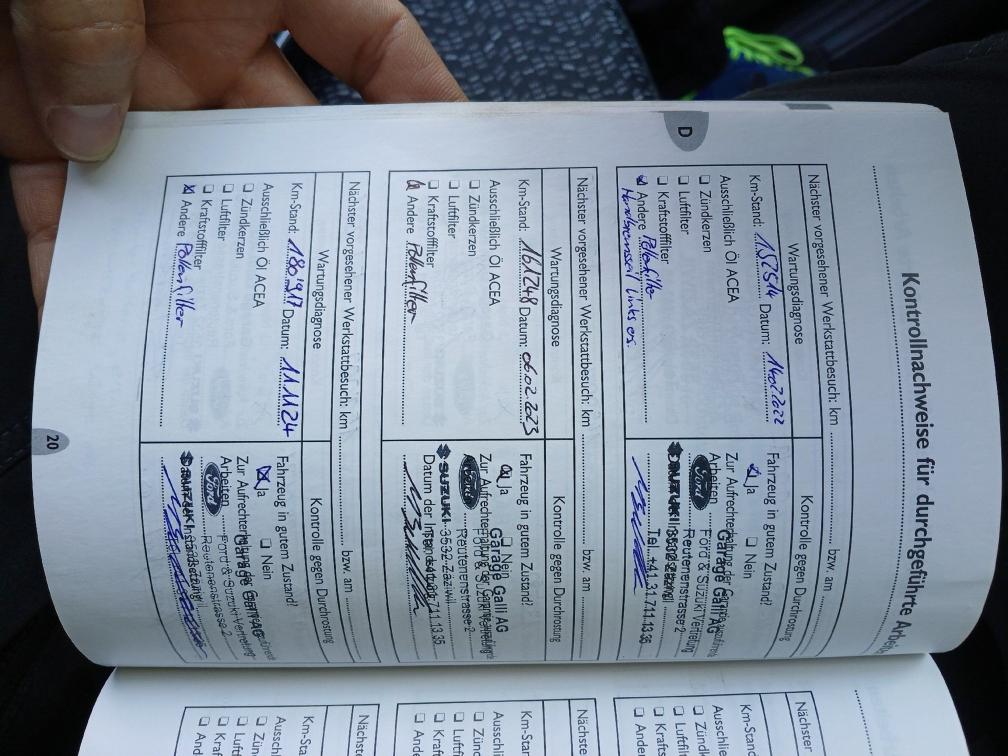 Kontrollnachweise für durchgeführte
D
Nächster vorgesehener Werkstattbesuch: km bzw. am
Wartungsdiagnose
Kontrolle gegen Durchrostung
Km-Stand: 157514 Datum: 14.02.2022
Ausschließlich Öl ACEA
❑ Zündkerzen
❑ Luftfilter
❑ Kraftstofffilter
❑ Andere Pollenfilter
links
Fahrzeug in gutem Zustand?
❑ Ja ❑ Nein
Zur Aufrechterhaltung der
Arbeiten
Garage Galli AG
Ford & Suzuki Vertretung
Reutenenstrasse 2
SUZUKI 3532 Zäziwil
Tel. +41 31 711 13 35
Ford
Nächster vorgesehener Werkstattbesuch: km bzw. am
Wartungsdiagnose
Kontrolle gegen Durchrostung
Km-Stand: 161248 Datum: 06.02.2023
Ausschließlich Öl ACEA
❑ Zündkerzen
❑ Luftfilter
❑ Kraftstofffilter
❑ Andere Pollenfilter
Fahrzeug in gutem Zustand?
❑ Ja ❑ Nein
Zur Aufrechterhaltung der
Garage Galli AG
Ford & Suzuki Vertretung
Reutenenstrasse 2
SUZUKI 3532 Zäziwil
Datum der
711 13 35
Ford
Nächster vorgesehener Werkstattbesuch: km bzw. am
Wartungsdiagnose
Kontrolle gegen Durchrostung
Km-Stand: 180'917 Datum: 11.11.24
Ausschließlich Öl ACEA
❑ Zündkerzen
❑ Luftfilter
❑ Kraftstofffilter
❑ Andere Pollenfilter
Fahrzeug in gutem Zustand?
❑ Ja ❑ Nein
Zur Aufrechterhaltung der
Arbeiten
Garage Galli AG
Ford & Suzuki Vertretung
Reutenenstrasse 2
SUZUKI
Ford
20
Nächster
Km-Sta
Ausschließ
❑ Zünd
❑ Luftf
❑ Krafts
❑ And
Nächster
Km-Sta
Ausschli
❑ Zünd
❑ Luftf
❑ Kraf
❑ And
Nächste
Km-Sta
Aussch
❑ Zün
❑ Luft
❑ Kraf
❑ And